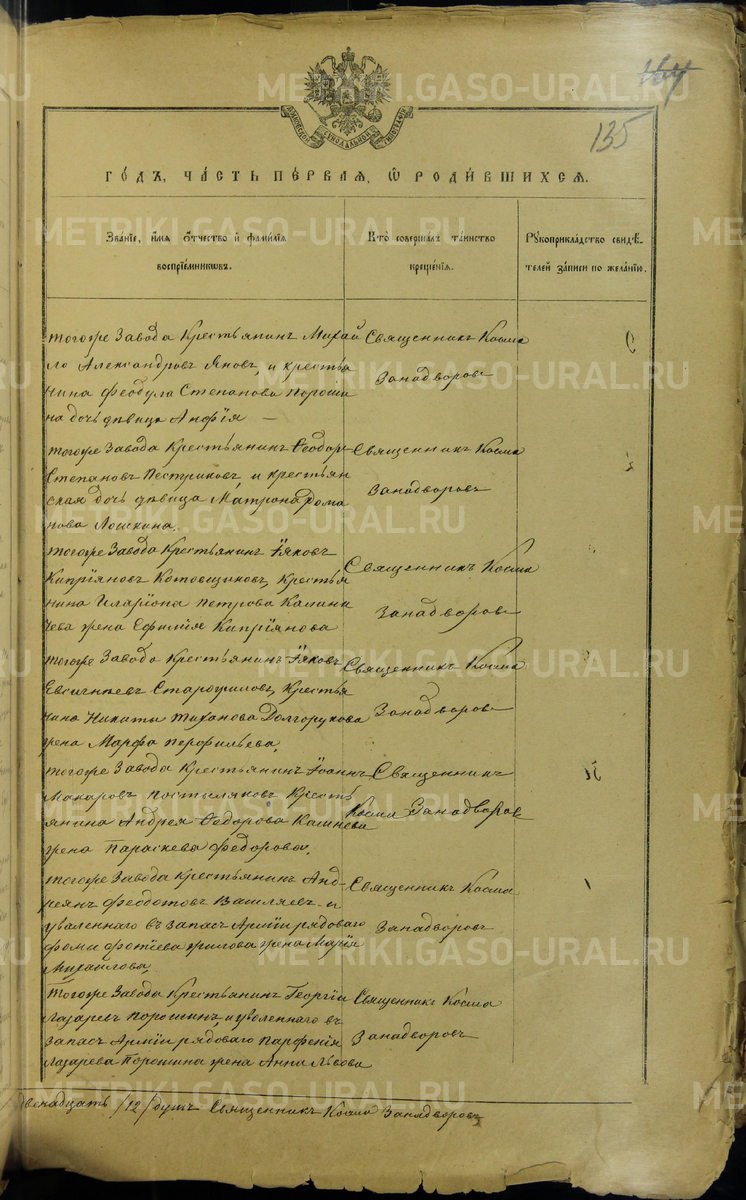 135
МОСКОВСКОЙ СѴНОДАЛЬНОЙ ТИПОГРАФІИ
ГОДЪ, ЧАСТЬ ПЕРВАЯ, Ѡ РОДИВШИХСЯ.
Званіе, имя отчество и фамилія
воспріемниковъ.
Кто совершалъ таинство
крещенія.
Рукоприкладство свидѣ-
телей записи по желанію.
тогоже Завода Крестьянинъ Михаи
ло Александровъ Яновъ, и крестья
нина Феодула Степанова Пороши
на дочь дѣвица Анфія
Священникъ Косма
Занадворовъ
тогоже Завода Крестьянинъ Ѳеодоръ
Степановъ Пестриковъ, и крестьян
ская дочь дѣвица Матрона Рома
нова Лошкина.
Священникъ Косма
Занадворовъ
тогоже Завода Крестьянинъ Іяковъ
Кипріяновъ Котовщиковъ, Крестья
нина Иларіона Петрова Калини
чева жена Ефилія Кипріянова
Священникъ Косма
Занадворовъ
тогоже Завода Крестьянинъ Іяковъ
Евсигнеевъ Старожиловъ, Крестья
нина Никиты Тихонова Долгорукова
жена Марфа Перфильева,
Священникъ Косма
Занадворовъ
тогоже Завода Крестьянинъ Іоаннъ
Макаровъ Постыляковъ Кресть
янина Андрея Ѳедорова Камнева
жена Параскева Федорова.
Священникъ
Косма Занадворовъ
тогоже Завода Крестьянинъ Анд-
реянъ Феодотовъ Вашляевъ и
уволеннаго въ запасъ Арміи рядоваго
Фомы Фотіева жилова жена Марія
Михайлова,
Священникъ Косма
Занадворовъ
Тогоже Завода Крестьянинъ Георгій
Лазаревъ Порошинъ и уволеннаго въ
запасъ Арміи рядоваго Парфенія
Лазарева Порошина жена Анна Львова
Священникъ Косма
Занадворовъ
двенадцать /12/ душъ Священникъ Косма Занадворовъ
METRIKI.GASO-URAL.RU